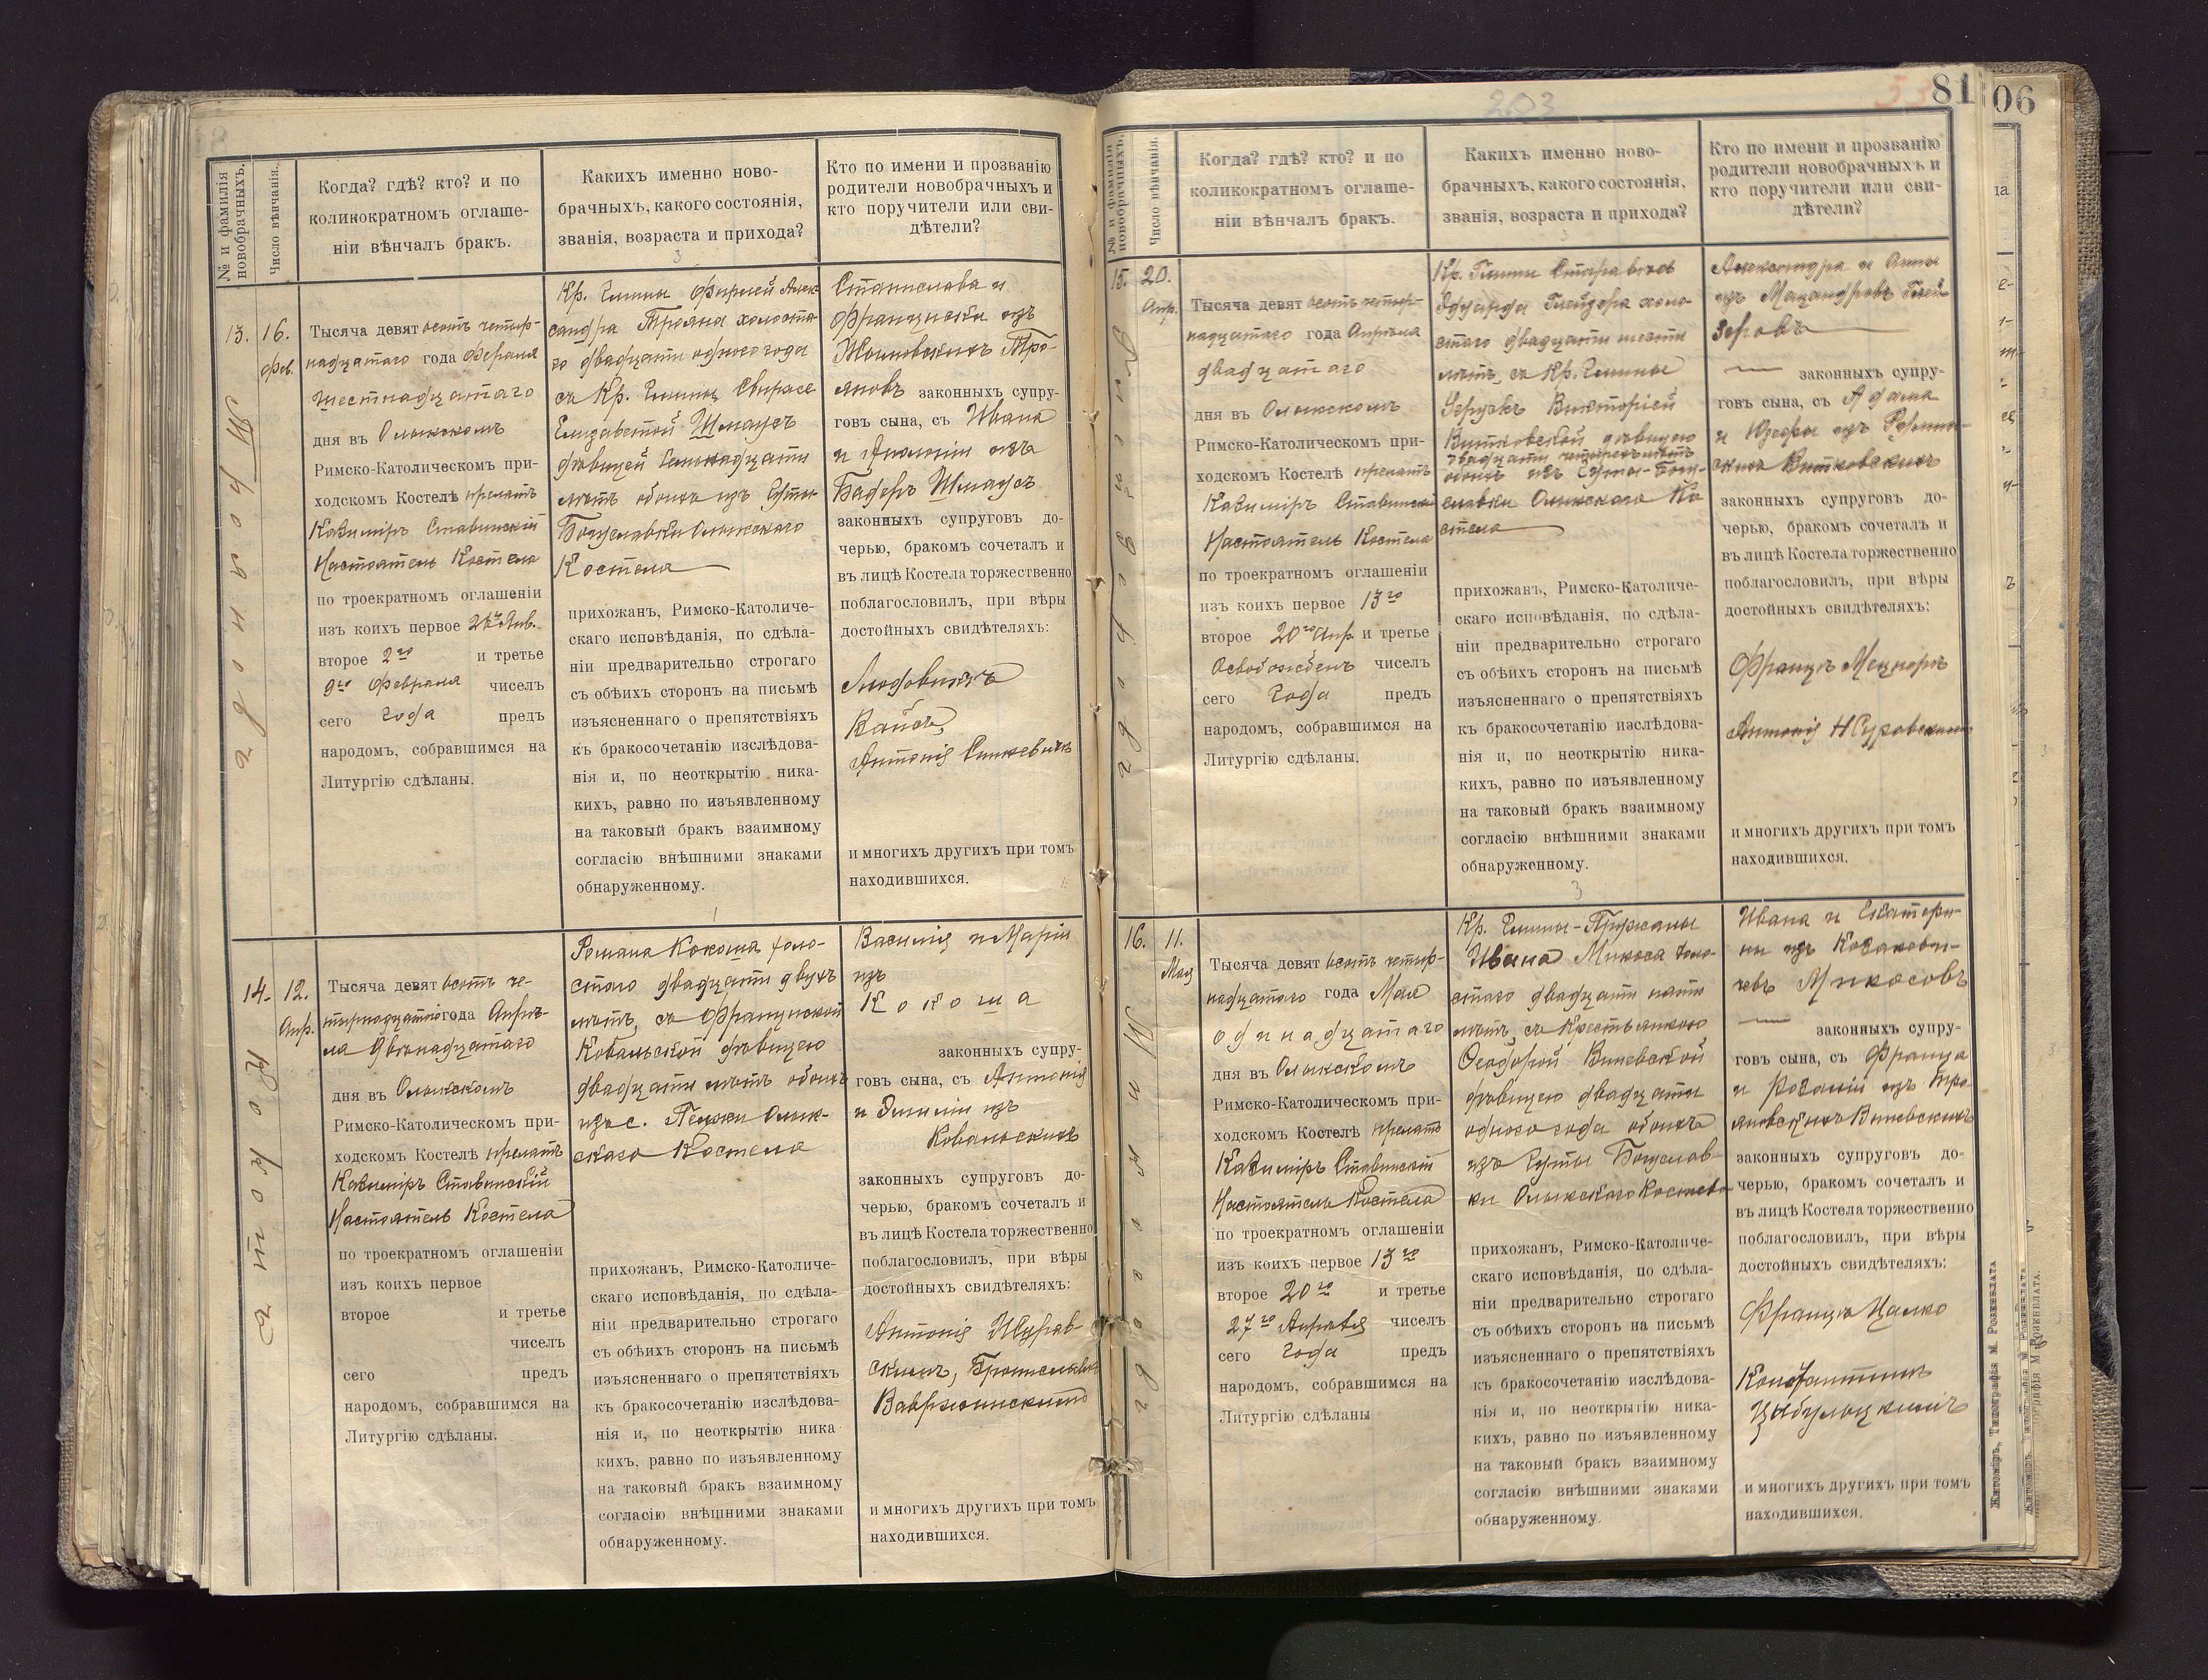 203
53
81
06
№ и фамилія новобрачныхъ.
Число вѣнчанія.
Когда? гдѣ? кто? и по
коликократномъ оглаше-
ніи вѣнчалъ бракъ.
Какихъ именно ново-
брачныхъ, какого состоянія,
званія, возраста и прихода?
Кто по имени и прозванію
родители новобрачныхъ и
кто поручители или сви-
дѣтели?
13.
16.
Фев.
Трояновъ
Тысяча девятьсотъ четыр-
надцатаго года Февраля
шестнадцатаго
дня въ Олыкскомъ
Римско-Католическомъ при-
ходскомъ Костелѣ прелатъ
Казиміръ Ставинскій
Настоятель Костела
по троекратномъ оглашеніи
изъ коихъ первое Янв.
второе 2го и третье
9го Февраля чиселъ
сего года предъ
народомъ, собравшимся на
Литургію сдѣланы.
Кр. Гмины Фирлей Алек
сандра Трояна холоста-
го двадцати одного года
съ Кр. Гмины
Елизаветой Шмаусъ
дѣвицей семнадцати
лѣтъ обоихъ изъ Гуты-
Богуславки Олыкскаго
Костела
прихожанъ, Римско-Католиче-
скаго исповѣданія, по сдѣла-
ніи предварительно строгаго
съ обѣихъ сторонъ на письмѣ
изъясненнаго о препятствіяхъ
къ бракосочетанію изслѣдова-
нія и, по неоткрытію ника-
кихъ, равно по изъявленному
на таковый бракъ взаимному
согласію внѣшними знаками
обнаруженному.
Станислава и
Франциски изъ
Тро-
яновъ законныхъ супру-
говъ сына, съ Ивана
и Аполоніи изъ
Бадеръ Шмаусъ
законныхъ супруговъ до-
черью, бракомъ сочеталъ и
въ лицѣ Костела торжественно
поблагословилъ, при вѣры
достойныхъ свидѣтеляхъ:
Людовикъ
Вайсъ,
Антоній
и многихъ другихъ при томъ
находившихся.
14.
12.
Апр.
Кокоша
Тысяча девятьсотъ че-
тырнадцатаго года Апрѣ-
ля двѣнадцатаго
дня въ Олыкскомъ
Римско-Католическомъ при-
ходскомъ Костелѣ прелатъ
Казиміръ Ставинскій
Настоятель Костела
по троекратномъ оглашеніи
изъ коихъ первое
второе и третье
чиселъ
сего предъ
народомъ, собравшимся на
Литургію сдѣланы.
Романа Кокоша холо-
стаго двадцати двухъ
лѣтъ, съ Францишкой
Ковальской дѣвицею
двадцати лѣтъ обоихъ
изъ с. Олык-
скаго Костела
прихожанъ, Римско-Католиче-
скаго исповѣданія, по сдѣла-
ніи предварительно строгаго
съ обѣихъ сторонъ на письмѣ
изъясненнаго о препятствіяхъ
къ бракосочетанію изслѣдова-
нія и, по неоткрытію ника
кихъ, равно по изъявленному
на таковый бракъ взаимному
согласію внѣшними знаками
обнаруженному.
Василія и Маріи
изъ
Кокоша
законныхъ супру-
говъ сына, съ Антонія
и Эмиліи изъ
Ковальскихъ
законныхъ супруговъ до-
черью, бракомъ сочеталъ и
въ лицѣ Костела торжественно
поблагословилъ, при вѣры
достойныхъ свидѣтеляхъ:
Антоній Журав-
скимъ,
и многихъ другихъ при томъ
находившихся.
№ и фамилія новобрачныхъ.
Число вѣнчанія.
Когда? гдѣ? кто? и по
коликократномъ оглаше-
ніи вѣнчалъ бракъ.
Какихъ именно ново-
брачныхъ, какого состоянія,
званія, возраста и прихода?
Кто по имени и прозванію
родители новобрачныхъ и
кто поручители или сви-
дѣтели?
15.
20.
Апр.
Тысяча девятьсотъ четыр-
надцатаго года Апрѣля
двадцатаго
дня въ Олыкскомъ
Римско-Католическомъ при-
ходскомъ Костелѣ прелатъ
Казиміръ Ставинскій
Настоятель Костела
по троекратномъ оглашеніи
изъ коихъ первое 13го
второе 20го Апр. и третье
Освобожденъ чиселъ
сего года предъ
народомъ, собравшимся на
Литургію сдѣланы.
Кр. Гмины
Эдуарда холо-
стаго двадцати шести
лѣтъ, съ Кр. Гмины
Викторіей
Витковской дѣвицею
двадцати четырехъ лѣтъ
обоихъ изъ Гуты-Богу-
славки Олыкскаго Ко
стела
прихожанъ, Римско-Католиче-
скаго исповѣданія, по сдѣла-
ніи предварительно строгаго
съ обѣихъ сторонъ на письмѣ
изъясненнаго о препятствіяхъ
къ бракосочетанію изслѣдова-
нія и, по неоткрытію ника-
кихъ, равно по изъявленному
на таковый бракъ взаимному
согласію внѣшними знаками
обнаруженному.
Александра и Анны
изъ
зеровъ
законныхъ супру-
говъ сына, съ Адама
и Юзефы изъ
скихъ Витковскихъ
законныхъ супруговъ до-
черью, бракомъ сочеталъ и
въ лицѣ Костела торжественно
поблагословилъ, при вѣры
достойныхъ свидѣтеляхъ:
Францъ
Антоній
и многихъ другихъ при томъ
находившихся.
16.
11.
Мая
Микосовъ
Тысяча девятьсотъ четыр-
надцатаго года Мая
одинадцатаго
дня въ Олыкскомъ
Римско-Католическомъ при-
ходскомъ Костелѣ прелатъ
Казиміръ Ставинскій
Настоятель Костела
по троекратномъ оглашеніи
изъ коихъ первое 13го
второе 20го и третье
27го Апрѣля чиселъ
сего года предъ
народомъ, собравшимся на
Литургію сдѣланы
Кр. Гмины-
Ивана Микоса холо-
стаго двадцати пяти
лѣтъ, съ Крестьянкою
Ѳеодорой
дѣвицею двадцати
одного года обоихъ
изъ Гуты Богуслав-
ки Олыкскаго Костела
прихожанъ, Римско-Католиче-
скаго исповѣданія, по сдѣла-
ніи предварительно строгаго
съ обѣихъ сторонъ на письмѣ
изъясненнаго о препятствіяхъ
къ бракосочетанію изслѣдова-
нія и, по неоткрытію ника-
кихъ, равно по изъявленному
на таковый бракъ взаимному
согласію внѣшними знаками
обнаруженному.
Ивана и Екатери-
ны изъ Козакови-
чевъ Микосовъ
законныхъ супру-
говъ сына, съ Франца
и Розаліи изъ Тро-
яновскихъ
законныхъ супруговъ до-
черью, бракомъ сочеталъ и
въ лицѣ Костела торжественно
поблагословилъ, при вѣры
достойныхъ свидѣтеляхъ:
Францъ
Константинъ
Цыбульскимъ
и многихъ другихъ при томъ
находившихся.
Житомiръ, Типографiя М. Розенблата